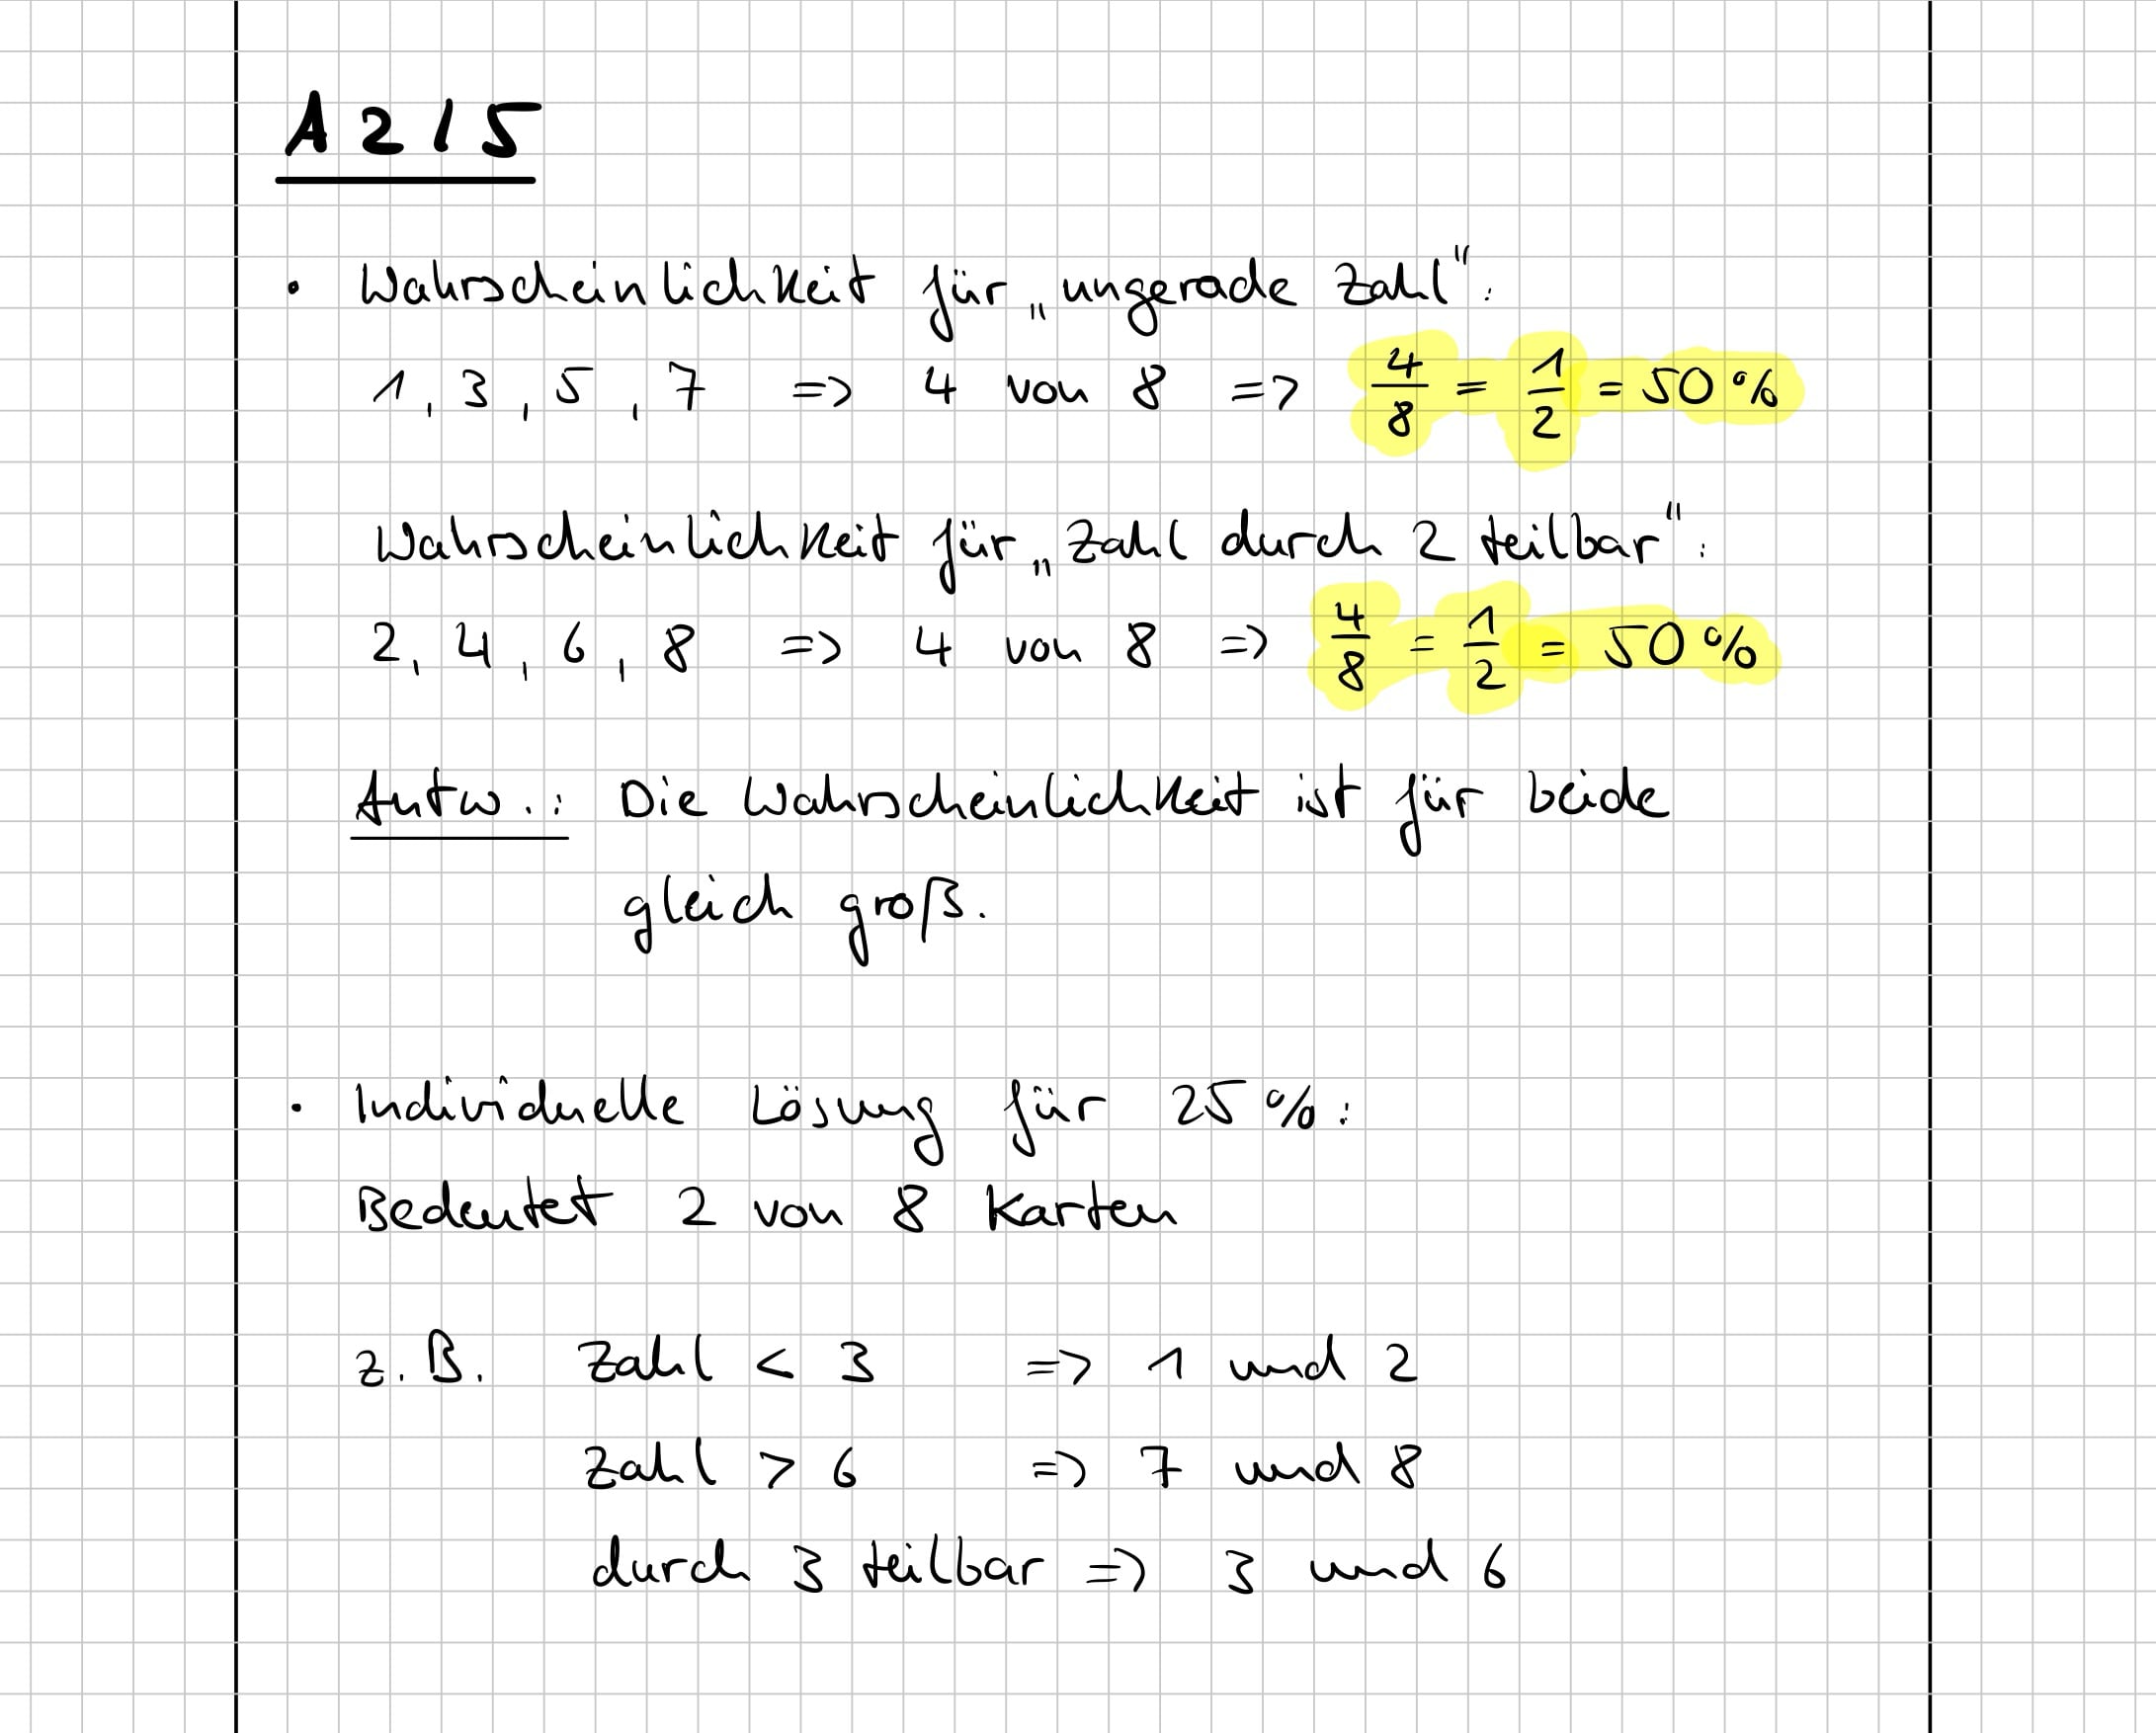 A2/5
• Wahrscheinlichkeit für „ungerade Zahl":
1, 3, 5, 7 => 4 von 8 => 4/8 = 1/2 = 50%
Wahrscheinlichkeit für „Zahl durch 2 teilbar":
2, 4, 6, 8 => 4 von 8 => 4/8 = 1/2 = 50%
Antw.: Die Wahrscheinlichkeit ist für beide
gleich groß.
• Individuelle Lösung für 25%:
Bedeutet 2 von 8 Karten
z.B. Zahl < 3 => 1 und 2
Zahl > 6 => 7 und 8
durch 3 teilbar => 3 und 6